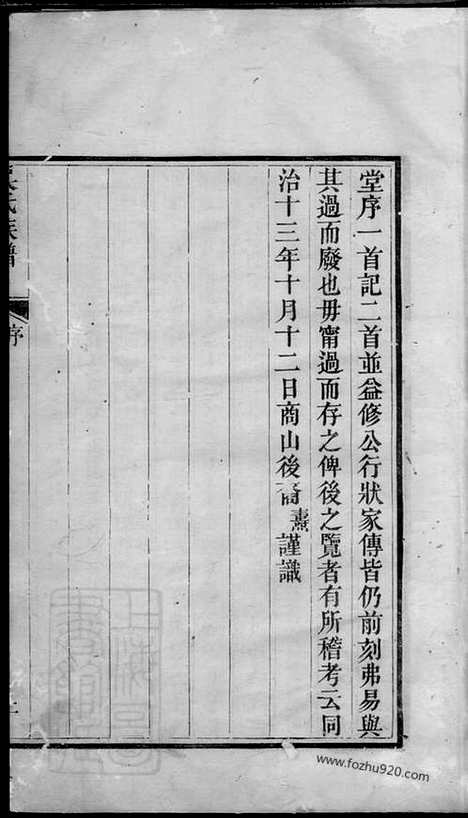 堂序一首記二首並益修公行狀家傳皆仍前刻弗易與
其過而廢也毋甯過而存之俾後之覽者有所稽考云同
治十三年十月十二日商山後裔熹謹識
氏族譜
序
www.fozhu920.com